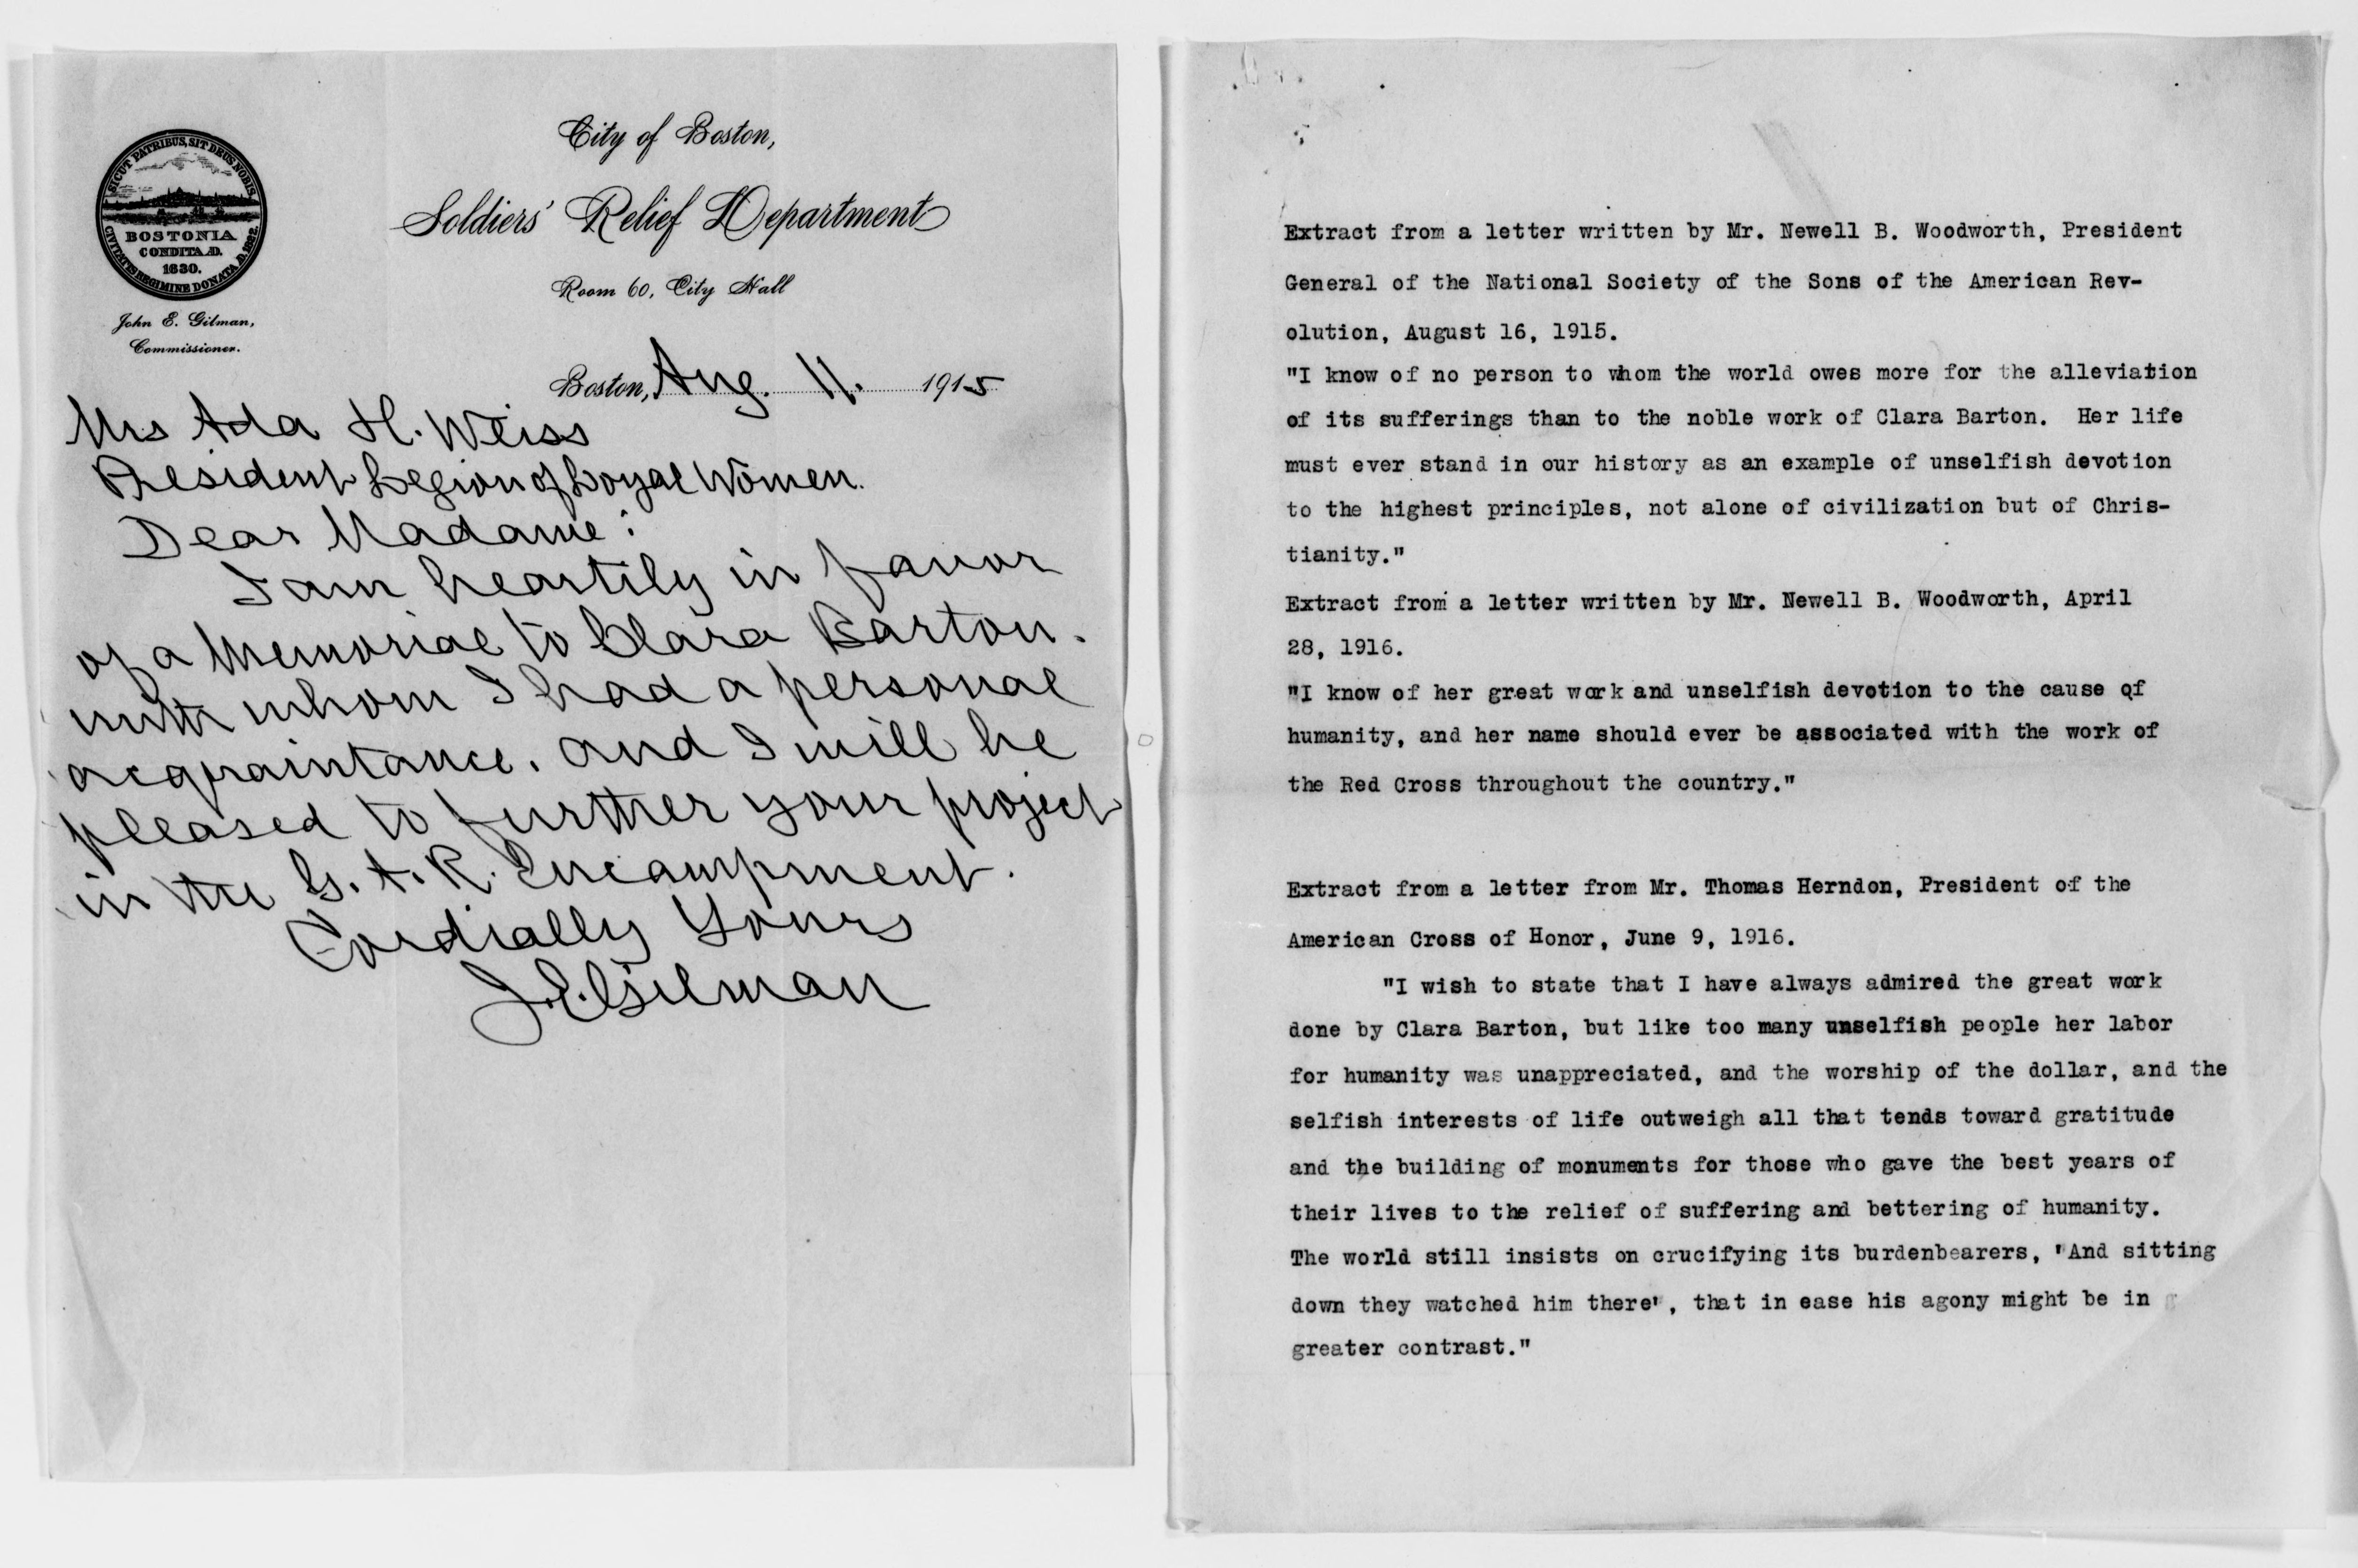 SICUT PATRIBUS, SIT DEUS NOBIS
BOSTONIA
CONDITA A.D.
1630.
CIVITATIS REGIMINE DONATA A.D. 1822.
John E. Gilman,
Commissioner.
City of Boston,
Soldiers' Relief Department
Room 60, City Hall
Boston, Aug. 11. 1915
Mrs Ada H. Weiss
President Legion of Loyal Women.
Dear Madame:
I am heartily in favor
of a Memorial to Clara Barton.
with whom I had a personal
acquaintance. and I will be
pleased to further your project
in the G. A. R. Encampment.
Cordially Yours
J. E. Gilman
Extract from a letter written by Mr. Newell B. Woodworth, President
General of the National Society of the Sons of the American Rev-
olution, August 16, 1915.
"I know of no person to whom the world owes more for the alleviation
of its sufferings than to the noble work of Clara Barton. Her life
must ever stand in our history as an example of unselfish devotion
to the highest principles, not alone of civilization but of Chris-
tianity."
Extract from a letter written by Mr. Newell B. Woodworth, April
28, 1916.
"I know of her great work and unselfish devotion to the cause of
humanity, and her name should ever be associated with the work of
the Red Cross throughout the country."
Extract from a letter from Mr. Thomas Herndon, President of the
American Cross of Honor, June 9, 1916.
"I wish to state that I have always admired the great work
done by Clara Barton, but like too many unselfish people her labor
for humanity was unappreciated, and the worship of the dollar, and the
selfish interests of life outweigh all that tends toward gratitude
and the building of monuments for those who gave the best years of
their lives to the relief of suffering and bettering of humanity.
The world still insists on crucifying its burdenbearers, 'And sitting
down they watched him there', that in ease his agony might be in g
greater contrast."